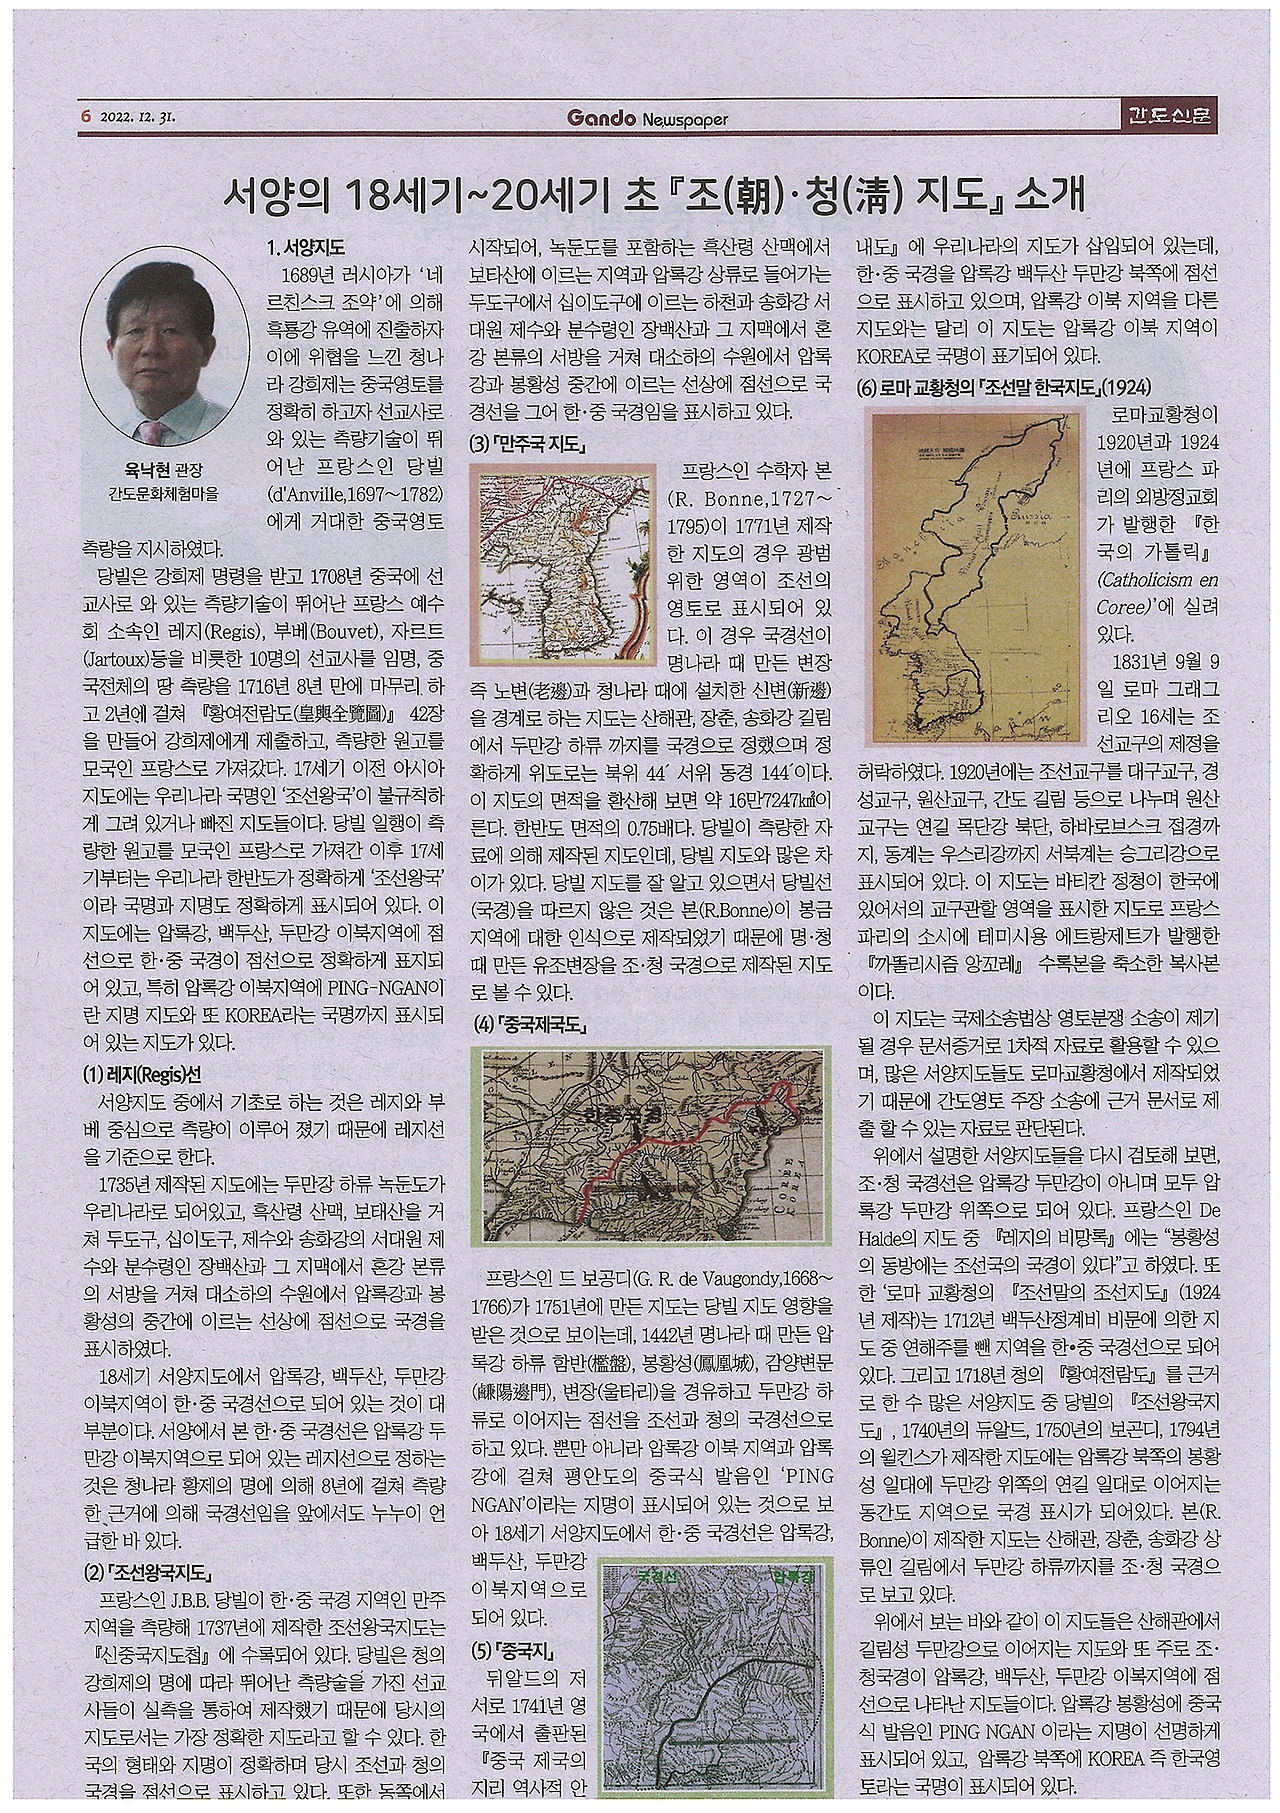 6 2022. 12. 31.
Gando Newspaper
간도신문
서양의 18세기~20세기 초 『조(朝)·청(淸) 지도』 소개
육낙현 관장
간도문화체험마을
1. 서양지도
1689년 러시아가 ‘네
르친스크 조약’에 의해
흑룡강 유역에 진출하자
이에 위협을 느낀 청나
라 강희제는 중국영토를
정확히 하고자 선교사로
와 있는 측량기술이 뛰
어난 프랑스인 당빌
(d'Anville,1697~1782)
에게 거대한 중국영토
측량을 지시하였다.
당빌은 강희제 명령을 받고 1708년 중국에 선
교사로 와 있는 측량기술이 뛰어난 프랑스 예수
회 소속인 레지(Regis), 부베(Bouvet), 자르트
(Jartoux)등을 비롯한 10명의 선교사를 임명, 중
국전체의 땅 측량을 1716년 8년 만에 마무리 하
고 2년에 걸쳐 『황여전람도(皇輿全覽圖)』 42장
을 만들어 강희제에게 제출하고, 측량한 원고를
모국인 프랑스로 가져갔다. 17세기 이전 아시아
지도에는 우리나라 국명인 ‘조선왕국’이 불규칙하
게 그려 있거나 빠진 지도들이다. 당빌 일행이 측
량한 원고를 모국인 프랑스로 가져간 이후 17세
기부터는 우리나라 한반도가 정확하게 ‘조선왕국’
이라 국명과 지명도 정확하게 표시되어 있다. 이
지도에는 압록강, 백두산, 두만강 이북지역에 점
선으로 한·중 국경이 점선으로 정확하게 표지되
어 있고, 특히 압록강 이북지역에 PING-NGAN이
란 지명 지도와 또 KOREA라는 국명까지 표시되
어 있는 지도가 있다.
(1) 레지(Regis)선
서양지도 중에서 기초로 하는 것은 레지와 부
베 중심으로 측량이 이루어 졌기 때문에 레지선
을 기준으로 한다.
1735년 제작된 지도에는 두만강 하류 녹둔도가
우리나라로 되어있고, 흑산령 산맥, 보태산을 거
쳐 두도구, 십이도구, 제수와 송화강의 서대원 제
수와 분수령인 장백산과 그 지맥에서 혼강 본류
의 서방을 거쳐 대소하의 수원에서 압록강과 봉
황성의 중간에 이르는 선상에 점선으로 국경을
표시하였다.
18세기 서양지도에서 압록강, 백두산, 두만강
이북지역이 한·중 국경선으로 되어 있는 것이 대
부분이다. 서양에서 본 한·중 국경선은 압록강 두
만강 이북지역으로 되어 있는 레지선으로 정하는
것은 청나라 황제의 명에 의해 8년에 걸쳐 측량
한 근거에 의해 국경선임을 앞에서도 누누이 언
급한 바 있다.
(2) 『조선왕국지도』
프랑스인 J.B.B. 당빌이 한·중 국경 지역인 만주
지역을 측량해 1737년에 제작한 조선왕국지도는
『신중국지도첩』에 수록되어 있다. 당빌은 청의
강희제의 명에 따라 뛰어난 측량술을 가진 선교
사들이 실측을 통하여 제작했기 때문에 당시의
지도로서는 가장 정확한 지도라고 할 수 있다. 한
국의 형태와 지명이 정확하며 당시 조선과 청의
국경을 점선으로 표시하고 있다. 또한 동쪽에서
시작되어, 녹둔도를 포함하는 흑산령 산맥에서
보타산에 이르는 지역과 압록강 상류로 들어가는
두도구에서 십이도구에 이르는 하천과 송화강 서
대원 제수와 분수령인 장백산과 그 지맥에서 혼
강 본류의 서방을 거쳐 대소하의 수원에서 압록
강과 봉황성 중간에 이르는 선상에 점선으로 국
경선을 그어 한·중 국경임을 표시하고 있다.
(3) 『만주국 지도』
프랑스인 수학자 본
(R. Bonne,1727~
1795)이 1771년 제작
한 지도의 경우 광범
위한 영역이 조선의
영토로 표시되어 있
다. 이 경우 국경선이
명나라 때 만든 변장
즉 노변(老邊)과 청나라 때에 설치한 신변(新邊)
을 경계로 하는 지도는 산해관, 장춘, 송화강 길림
에서 두만강 하류 까지를 국경으로 정했으며 정
확하게 위도로는 북위 44´ 서위 동경 144´이다.
이 지도의 면적을 환산해 보면 약 16만7247㎢이
른다. 한반도 면적의 0.75배다. 당빌이 측량한 자
료에 의해 제작된 지도인데, 당빌 지도와 많은 차
이가 있다. 당빌 지도를 잘 알고 있으면서 당빌선
(국경)을 따르지 않은 것은 본(R.Bonne)이 봉금
지역에 대한 인식으로 제작되었기 때문에 명·청
때 만든 유조변장을 조·청 국경으로 제작된 지도
로 볼 수 있다.
(4) 『중국제국도』
한중국경
COREE
프랑스인 드 보공디(G. R. de Vaugondy,1668~
1766)가 1751년에 만든 지도는 당빌 지도 영향을
받은 것으로 보이는데, 1442년 명나라 때 만든 압
록강 하류 함반(檻盤), 봉황성(鳳凰城), 감양변문
(鹻陽邊門), 변장(울타리)을 경유하고 두만강 하
류로 이어지는 점선을 조선과 청의 국경선으로
하고 있다. 뿐만 아니라 압록강 이북 지역과 압록
강에 걸쳐 평안도의 중국식 발음인 ‘PING
NGAN’이라는 지명이 표시되어 있는 것으로 보
아 18세기 서양지도에서 한·중 국경선은 압록강,
백두산, 두만강
이북지역으로
되어 있다.
국경선
압록강
(5) 『중국지』
뒤알드의 저
서로 1741년 영
국에서 출판된
『중국 제국의
지리 역사적 안
내도』에 우리나라의 지도가 삽입되어 있는데,
한·중 국경을 압록강 백두산 두만강 북쪽에 점선
으로 표시하고 있으며, 압록강 이북 지역을 다른
지도와는 달리 이 지도는 압록강 이북 지역이
KOREA로 국명이 표기되어 있다.
(6) 로마 교황청의 『조선말 한국지도』(1924)
Russia
로마교황청이
1920년과 1924
년에 프랑스 파
리의 외방정교회
가 발행한 『한
국의 가톨릭』
(Catholicism en
Coree)’에 실려
있다.
1831년 9월 9
일 로마 그래그
리오 16세는 조
선교구의 제정을
허락하였다. 1920년에는 조선교구를 대구교구, 경
성교구, 원산교구, 간도 길림 등으로 나누며 원산
교구는 연길 목단강 북단, 하바로브스크 접경까
지, 동계는 우스리강까지 서북계는 승그리강으로
표시되어 있다. 이 지도는 바티칸 정청이 한국에
있어서의 교구관할 영역을 표시한 지도로 프랑스
파리의 소시에 테미시용 에트랑제트가 발행한
『까똘리시즘 앙꼬레』 수록본을 축소한 복사본
이다.
이 지도는 국제소송법상 영토분쟁 소송이 제기
될 경우 문서증거로 1차적 자료로 활용할 수 있으
며, 많은 서양지도들도 로마교황청에서 제작되었
기 때문에 간도영토 주장 소송에 근거 문서로 제
출 할 수 있는 자료로 판단된다.
위에서 설명한 서양지도들을 다시 검토해 보면,
조·청 국경선은 압록강 두만강이 아니며 모두 압
록강 두만강 위쪽으로 되어 있다. 프랑스인 De
Halde의 지도 중 『레지의 비망록』에는 “봉황성
의 동방에는 조선국의 국경이 있다”고 하였다. 또
한 ‘로마 교황청의 『조선말의 조선지도』(1924
년 제작)는 1712년 백두산정계비 비문에 의한 지
도 중 연해주를 뺀 지역을 한•중 국경선으로 되어
있다. 그리고 1718년 청의 『황여전람도』를 근거
로 한 수 많은 서양지도 중 당빌의 『조선왕국지
도』, 1740년의 듀알드, 1750년의 보곤디, 1794년
의 윌킨스가 제작한 지도에는 압록강 북쪽의 봉황
성 일대에 두만강 위쪽의 연길 일대로 이어지는
동간도 지역으로 국경 표시가 되어있다. 본(R.
Bonne)이 제작한 지도는 산해관, 장춘, 송화강 상
류인 길림에서 두만강 하류까지를 조·청 국경으
로 보고 있다.
위에서 보는 바와 같이 이 지도들은 산해관에서
길림성 두만강으로 이어지는 지도와 또 주로 조·
청국경이 압록강, 백두산, 두만강 이북지역에 점
선으로 나타난 지도들이다. 압록강 봉황성에 중국
식 발음인 PING NGAN 이라는 지명이 선명하게
표시되어 있고, 압록강 북쪽에 KOREA 즉 한국영
토라는 국명이 표시되어 있다.